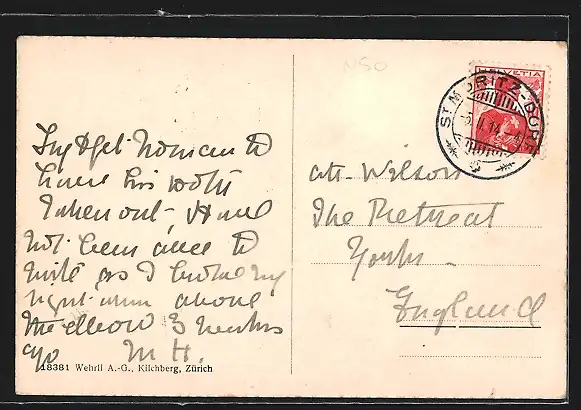 Try & get Norman to
have his tooth
taken out. Have
not been able to
write as I broke my
right arm above
the elbow 3 weeks
ago M H.
18381 Wehrli A.-G., Kilchberg, Zürich
NSO
HELVETIA
ST. MORITZ-DORF
Wilson
The Retreat
York
England